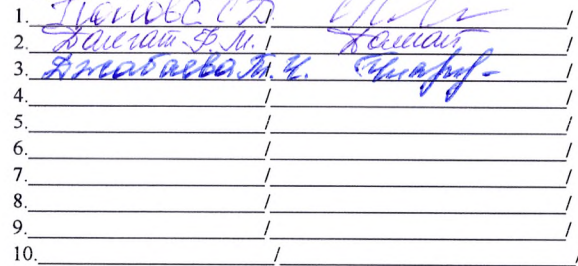 1. Панова С.Д. / /
2. Далгат Ф.М. / Далгат /
3. Джабаева Т.Ч. /
4. / /
5. / /
6. / /
7. / /
8. / /
9. / /
10. / /